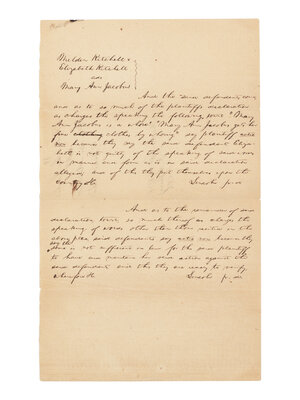 Milden Kitchell &
Elizabeth Kitchell
ads
Mary Ann Jacobus
And the said defendants come
and as to so much of the plaintiffs declaration
as charges the speaking the following towit "Mary
Ann Jacobus is a whore" "Mary Ann Jacobus gets her
fine clothing clothes by whoring" say plaintiff actio
non because they say the said defendant Eliza
beth is not guilty of the speaking of said words
in manner and form as is in said declaration
alleged, and of this they put themselves upon the
country &c Lincoln p. d
And as to the remainder of said
declaration towit so much thereof as alleges the
speaking of words other than those written in the
above plea said defendants say actio non because they
say the same is not sufficient in law for the said plaintiff
to have and maintain her said action against the
said defendants and this they are ready to verify
wherefore &c Lincoln p. d